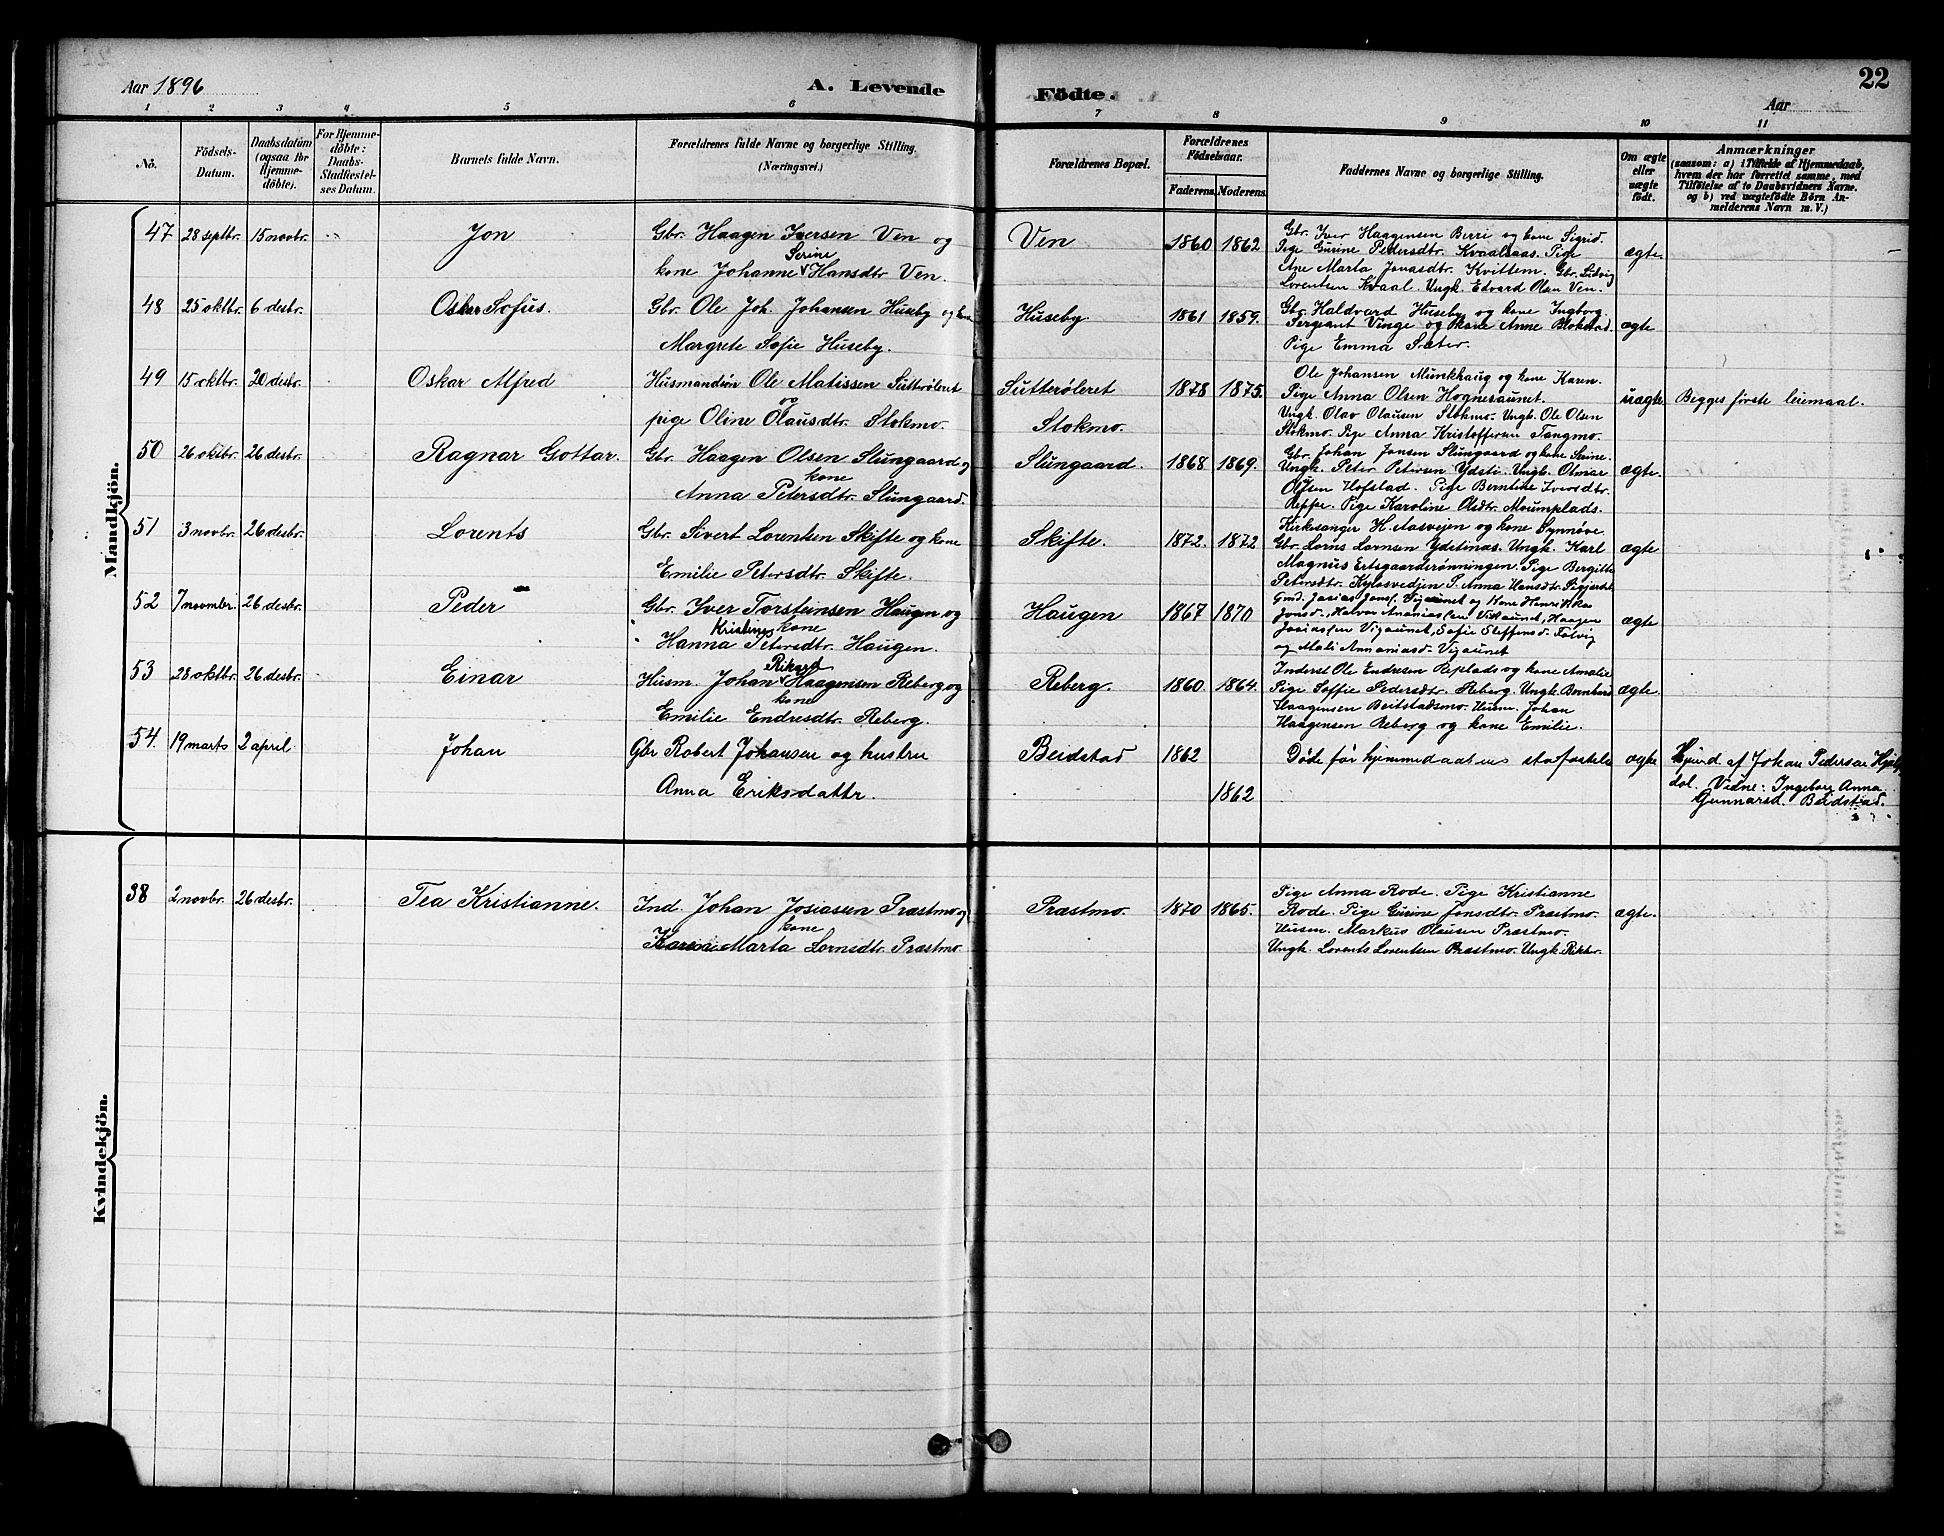 Aar 1896
A. Levende
Födte.
22
Aar
1 2 3 4 5 6 7 8 9 10 11
No.
Födsels-
Datum.
Daabsdatum
(ogsaa for
Hjemme-
döbte).
For Hjemme-
döbte:
Daabs-
Stadfæstel-
ses Datum.
Barnets fulde Navn.
Forældrenes fulde Navne og borgerlige Stilling.
(Næringsvei.)
Forældrenes Bopæl.
Forældrenes
Födselsaar.
Faderens. Moderens.
Faddernes Navne og borgerlige Stilling.
Om ægte
eller
uægte
födt.
Anmærkninger
(saasom: a) i Tilfælde af Hjemmedaab,
hvem der har forrettet samme, med
Tilföielse af to Daabsvidners Navne.
og b) ved uægtefödte Börn An-
melderens Navn m. V.)
Mandkjön.
47 28 septbr. 15 novbr. Jon
Gbr. Haagen Iversen Ven og
Serine
kone Johanne Hansdtr Ven.
Ven 1860 1862
Gbr. Iver Haagensen Berri og kone Sigrid.
Pige Gurine Pedersdtr. Kvaalsaas. Pige
Ane Marta Jonasdtr. Kvittem. Gbr. Ludvig
Lorentsen Kvaal. Ungk. Edvard Olsen Ven.
ægte.
48 25 oktbr. 6 desbr. Oskar Sofus.
Gbr. Ole Joh. Johansen Huseby og kone
Margrete Sofie Huseby.
Huseby. 1861 1859.
Gbr. Haldvard Huseby og kone Ingborg.
Sergeant Vinge og kone Anne Blokstad.
Pige Emma Sæter.
ægte
49 15 oktbr. 20 desbr Oskar Alfred
Husmandsøn Ole Matissen Sutterøleret
og
pige Oline Olausdtr. Stokmo.
Sutterøleret
Stokmo.
1878 1875.
Ole Johansen Munkhaug og kone Karen.
Pige Anna Olsen Hognesaunet.
Ungk. Olav Olausen Stokmo. Ungk. Ole Olsen
Stokmo. Pige Anna Kristoffersen Tangmo.
uægte. Begges første leiemaal.
50 26 oktbr. 26 desbr. Ragnar Gottar.
Gbr. Haagen Olsen Slungaard og
kone
Anna Petersdtr. Slungaard.
Slungaard. 1868 1869.
Gbr. Johan Jonsen Slungaard og kone Serine.
Ungk. Peter Petersen Ydsti. Ungk. Otmar
Olysen Hofstad. Pige Berntine Iversdtr.
Reppe. Pige Karoline Olsdtr. Moumplads.
ægte.
51 3 novbr. 26 desbr. Lorents
Gbr. Sivert Lorentsen Skifte og kone
Emilie Petersdtr. Skifte.
Skifte. 1872. 1872
Kirkesanger H. Aasvejen og kone Synnøve.
Gbr. Lorns Lornsen Ydstinas. Ungk. Karl
Magnus Ertsgaarderønningen. Pige Bergitte
Petersdtr. Kylosvedjen P. Anna Hansdtr.
ægte
52 7 november. 26 desbr. Peder
Gbr. Iver Torsteinsen Haugen og
Kristine kone
Hanna Petersdtr. Haugen.
Haugen 1867 1870
Gmd. Josias Jons. Vigaunet og Kone Henrikka
Jonsd., Halvor Ananiassen Vikaunet, Haagen
Josiassen Vigaunet, Sofie Steffensd. Følvig
og Mali Annaniasd. Vigaunet
ægte
53 28 oktbr. 26 desbr. Einar
Rikard
Husm. Johan Haagensen Reberg og
kone
Emilie Endresdtr. Reberg.
Reberg. 1860. 1864.
Inderst Ole Endresen Replads og kone Amalie
Pige Soffie Pedersdtr. Reberg. Ungk. Bernhard
Haagensen Beitstadsmo. Husm. Johan
Haagensen Reberg og kone Emilie.
ægte.
54. 19 marts 2 april. Johan
Gbr Robert Johansen og hustru
Anna Eriksdattr.
Beidstad 1862
1862
Døde før hjemmedaabens ægte
af Johan Pedersen
dal. Vidne: Ingeborg Anna
Gunnarsd. Beidstad.
Kvindekjön.
38 2 novbr. 26 desbr. Tea Kristianne.
Ind. Johan Josiasen Præstmo og
kone
Marta Lornsdtr. Præstmo
Præstmo. 1870 1865.
Pige Anna Rode. Pige Kristianne
Rode. Pige Gurine Jonsdtr. Præstmo.
Husm. Markus Olausen Præstmo.
Ungk. Lorents Lorentsen Præstmo. Ungk.
ægte.